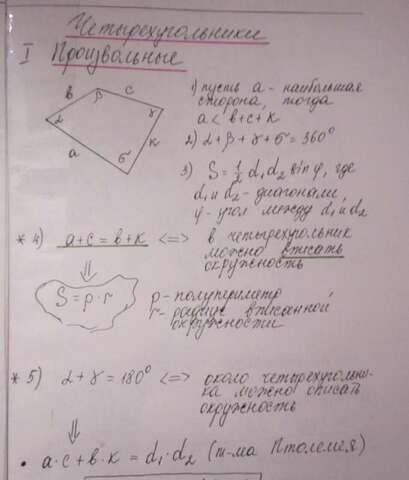 Четырехугольники
I Произвольные
в
β
c
α
γ
a
σ
к
1) пусть a - наибольшая
сторона, тогда
a < в+c+к
2) α+β+γ+σ = 360°
3) S = 1/2 d₁ d₂ sin φ, где
d₁ и d₂ - диагонали,
φ - угол между d₁ и d₂
* 4) a+c = в+к <=> в четырехугольник
можно вписать
окружность
⇓
S = p·r
p - полупериметр
r - радиус вписанной
окружности
* 5) α+γ = 180° <=> около четырехугольни-
ка можно описать
окружность
⇓
• a·c + в·к = d₁·d₂ (т-ма Птолемея)